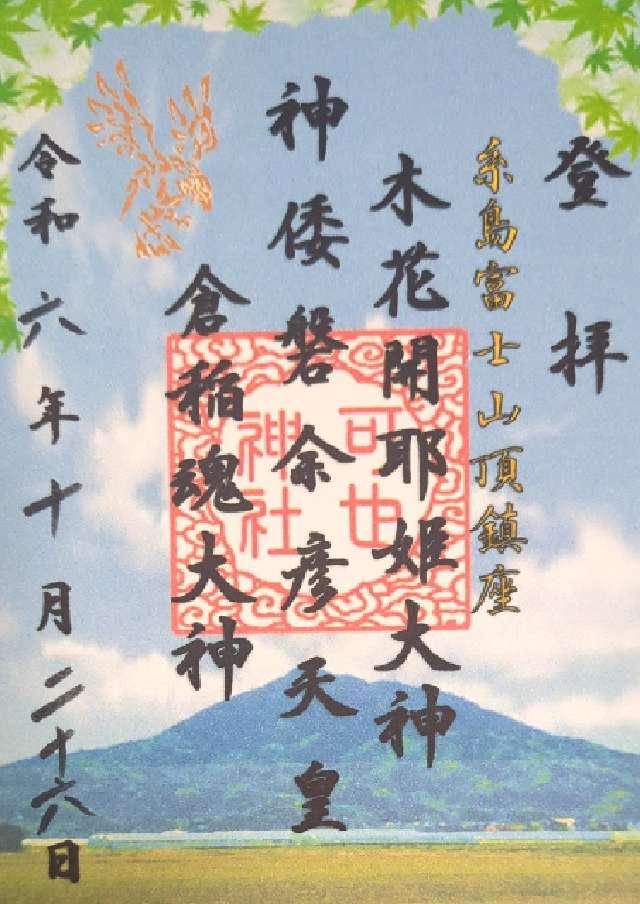 登拝
糸島富士山頂鎮座
木花開耶姫大神
神倭磐余彦天皇
倉稲魂大神
可也神社
令和六年十月二十六日